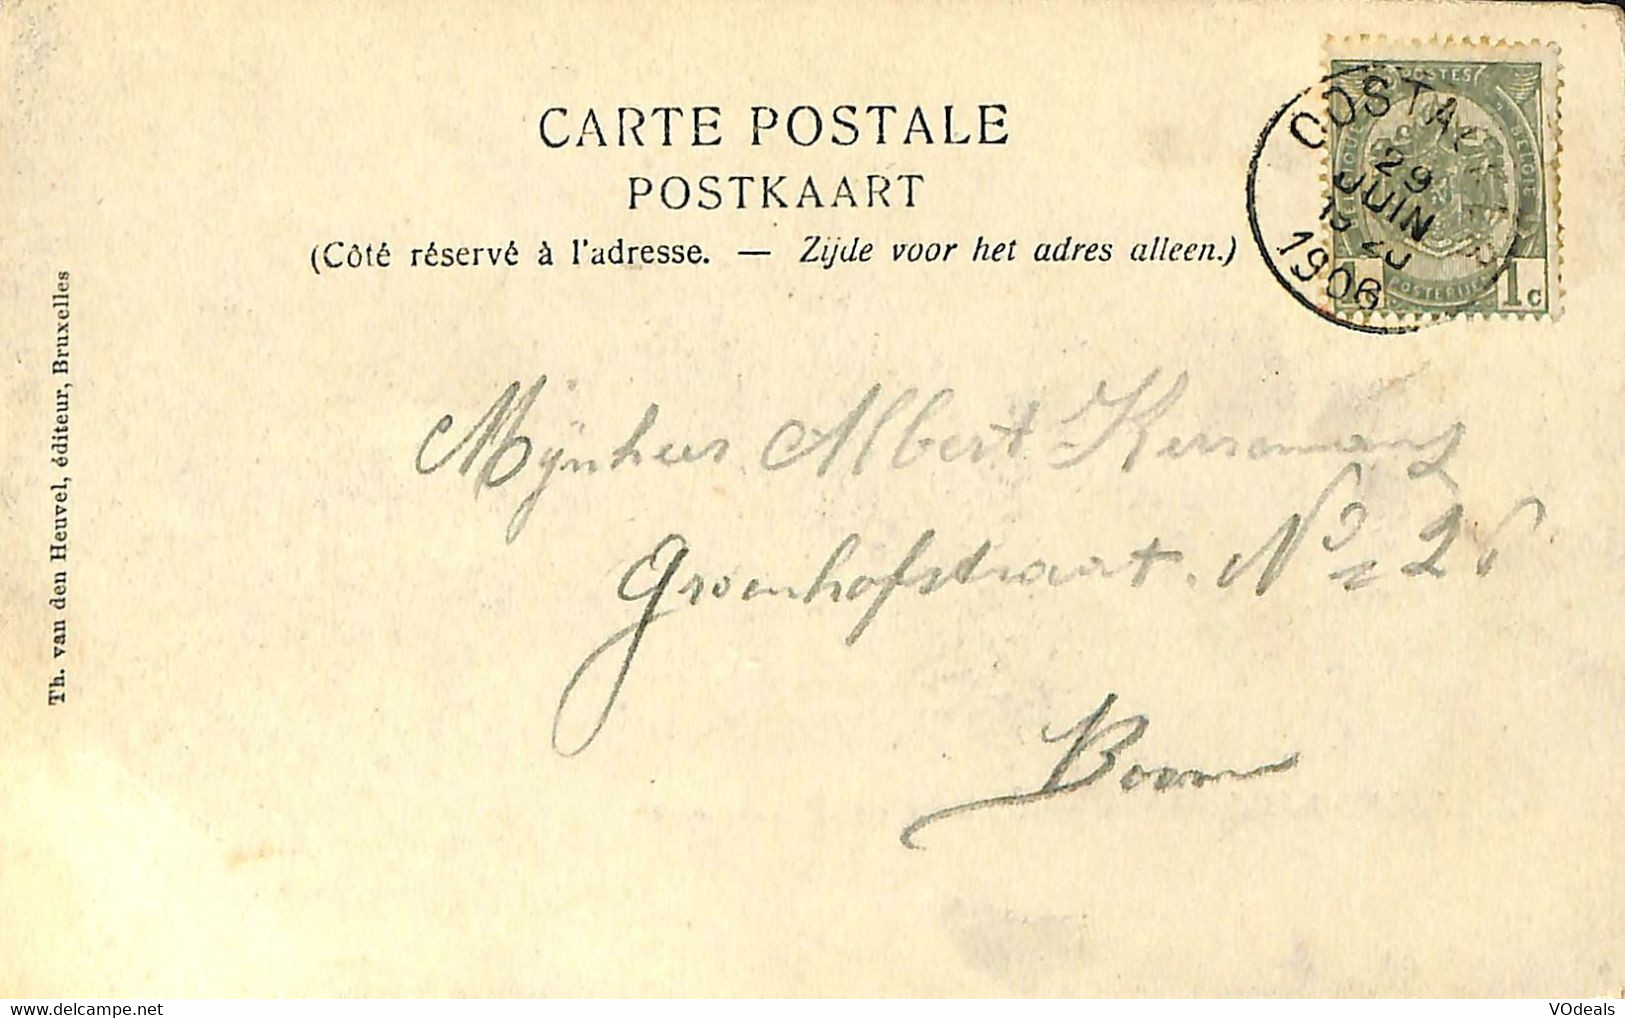 CARTE POSTALE
POSTKAART
(Côté réservé à l'adresse. — Zijde voor het adres alleen.)
Th. van den Heuvel, éditeur, Bruxelles
POSTES
BELGIQUE
BELGIE
POSTERIJEN
1c
29
JUIN
1906
Mijnheer Albert Kerremans
Groenhofstraat. No 26
Boom
delcampe.net
VOdeals